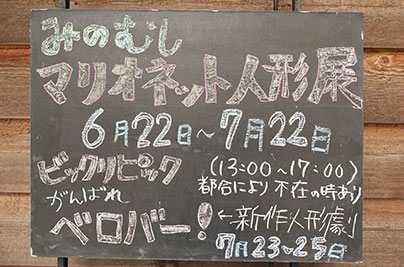 みのむし
マリオネット人形展
6月22日～7月22日
(13:00～17:00)
都合により不在の時あり
ビックリピック
がんばれ
ベロバー!
←新作人形劇
7月23～25日